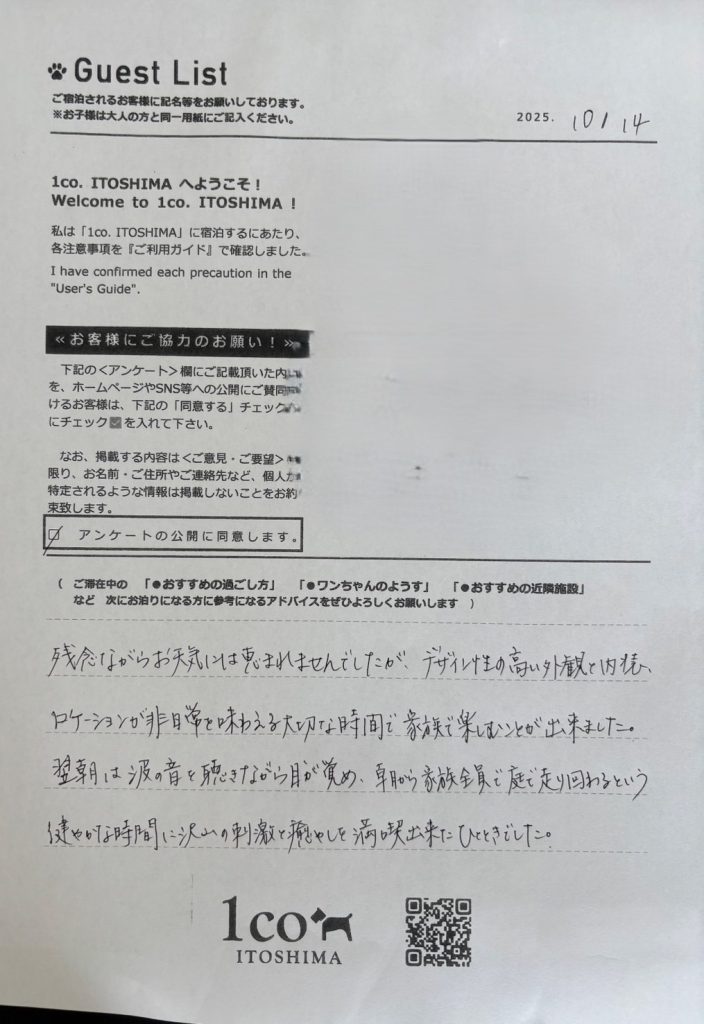 Guest List
ご宿泊されるお客様に記名等をお願いしております。
※お子様は大人の方と同一用紙にご記入ください。
2025. 10/14
1co. ITOSHIMA へようこそ！
Welcome to 1co. ITOSHIMA !
私は「1co. ITOSHIMA」に宿泊するにあたり、
各注意事項を『ご利用ガイド』で確認しました。
I have confirmed each precaution in the
"User's Guide".
≪お客様にご協力のお願い！≫
下記の＜アンケート＞欄にご記載頂いた内
を、ホームページやSNS等への公開にご賛同
けるお客様は、下記の「同意する」チェック
にチェック☑を入れて下さい。
なお、掲載する内容は＜ご意見・ご要望＞
限り、お名前・ご住所やご連絡先など、個人
特定されるような情報は掲載しないことをお約
束致します。
☑ アンケートの公開に同意します。
（ ご滞在中の 「●おすすめの過ごし方」 「●ワンちゃんのようす」 「●おすすめの近隣施設」
など 次にお泊りになる方に参考になるアドバイスをぜひよろしくお願いします ）
残念ながらお天気には恵まれませんでしたが、デザイン性の高い外観と内装、
ロケーションが非日常を味わえる大切な時間で家族で楽しむことが出来ました。
翌朝は波の音を聴きながら目が覚め、朝から家族全員で庭で走り回れるという
健やかな時間に沢山の刺激と癒やしを満喫出来たひとときでした。
1co
ITOSHIMA